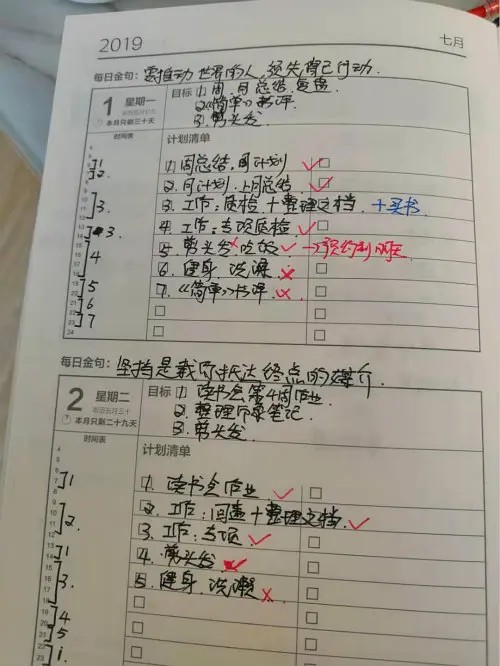 2019 七月
每日金句: 要推动世界的人,须先自己行动.
1 星期一
本月只剩三十天
目标 ① 周、月总结,复盘
②《简单》书评
③ 剪头发
时间表 计划清单
① 周总结,周计划 ✓
② 月计划,上月总结 ✓
③ 工作:质检+整理文档 +买书
④ 工作:专项质检 ✓
⑤ 剪头发 × 吃饭 ✓
⑥ 健身 洗澡 ×
7.《简单》书评 ×
每日金句: 坚持是载你抵达终点的媒介.
2 星期二
农历五月三十
本月只剩二十九天
目标 ① 读书会第4周作业
② 整理印象笔记
③ 剪头发
时间表 计划清单
① 读书会作业 ✓
② 工作:回查+整理文档 ✓
③ 工作:专项 ✓
④ 剪头发 ✓
⑤ 健身 洗漱 ×